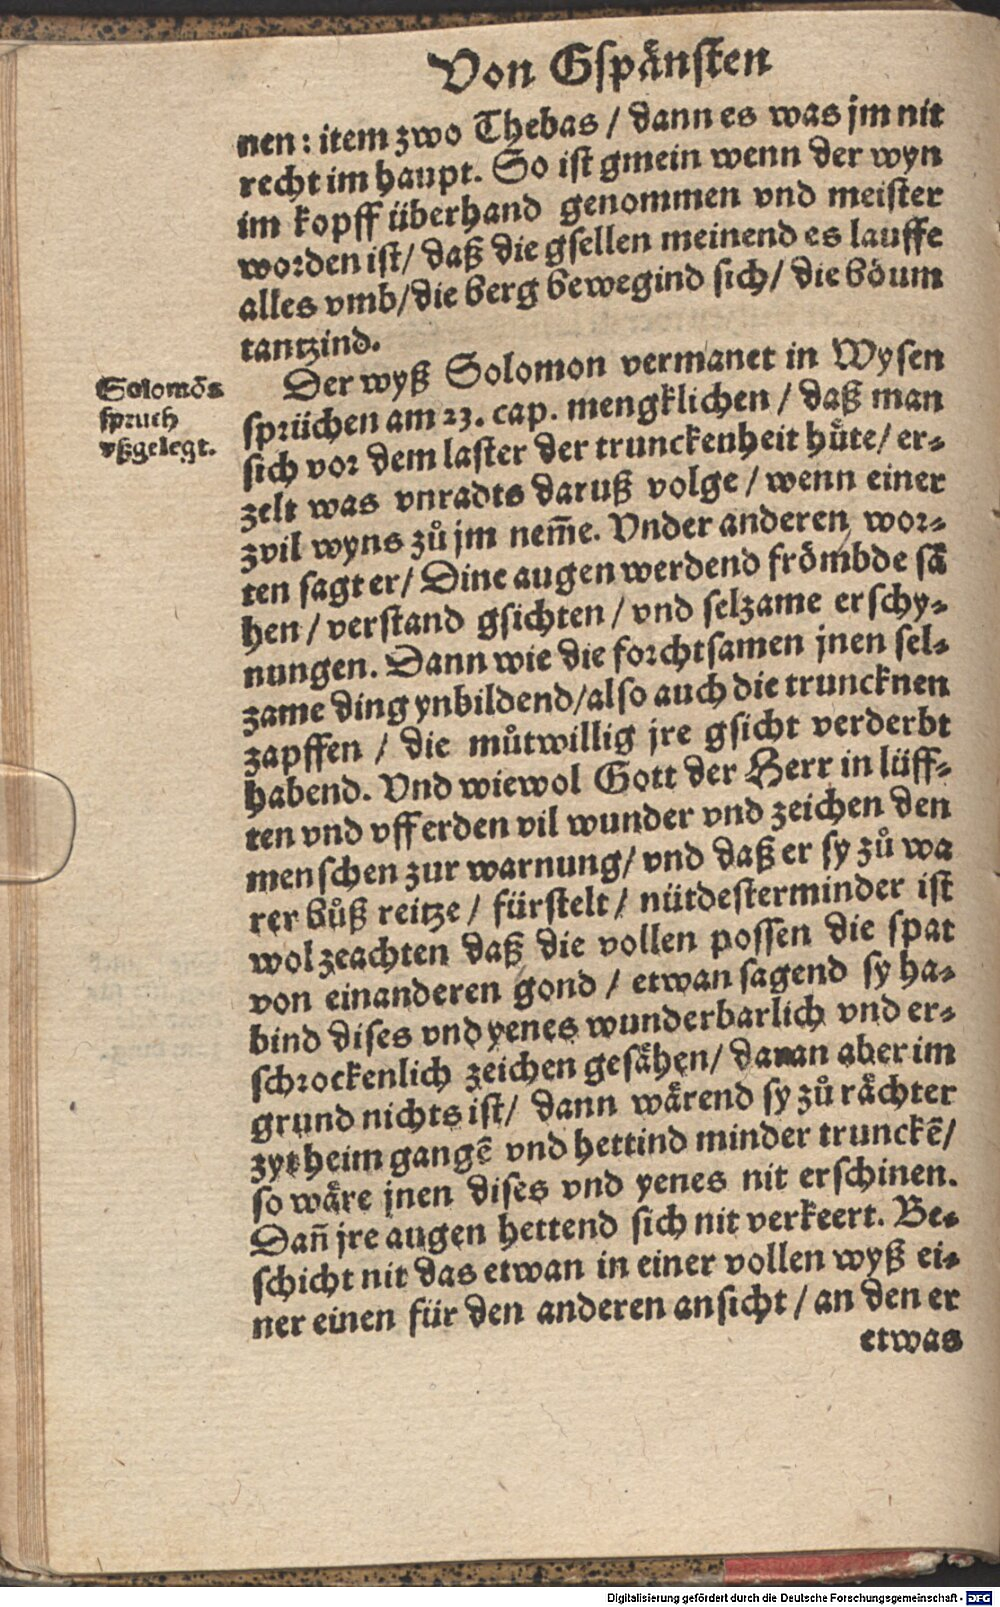 Von Gspånsten
nen: item zwo Thebas / dann es was jm nit
recht im haupt. So ist gmein wenn der wyn
im kopff überhand genommen vnd meister
worden ist / daß die gsellen meinend es lauffe
alles vmb / die berg bewegind sich / die böum
tantzind.
Der wyß Solomon vermanet in Wysen
sprüchen am 23. cap. mengklichen / daß man
sich vor dem laster der trunckenheit hůte / er-
zelt was vnradts daruß volge / wenn einer
zvil wyns zů jm nem̃e. Vnder anderen wor-
ten sagt er / Dine augen werdend frömbde sä
hen / verstand gsichten / vnd selzame erschy-
nungen. Dann wie die forchtsamen jnen sel-
zame ding ynbildend / also auch die truncknen
zapffen / die můtwillig jre gsicht verderbt
habend. Vnd wiewol Gott der Herr in lüff-
ten vnd vff erden vil wunder vnd zeichen den
menschen zur warnung / vnd daß er sy zů wa
rer bůß reitze / fürstelt / nütdesterminder ist
wol zeachten daß die vollen possen die spat
von einanderen gond / etwan sagend sy ha-
bind dises vnd yenes wunderbarlich vnd er-
schrockenlich zeichen gesåhen / daran aber im
grund nichts ist / dann wårend sy zů råchter
zyt heim gangē vnd hettind minder trunckē /
so wåre jnen dises vnd yenes nit erschinen.
Dañ jre augen hettend sich nit verkeert. Be-
schicht nit das etwan in einer vollen wyß ei-
ner einen für den anderen ansicht / an den er
etwas
Solomōs
spruch
vßgelegt.
Digitalisierung gefördert durch die Deutsche Forschungsgemeinschaft - DFG